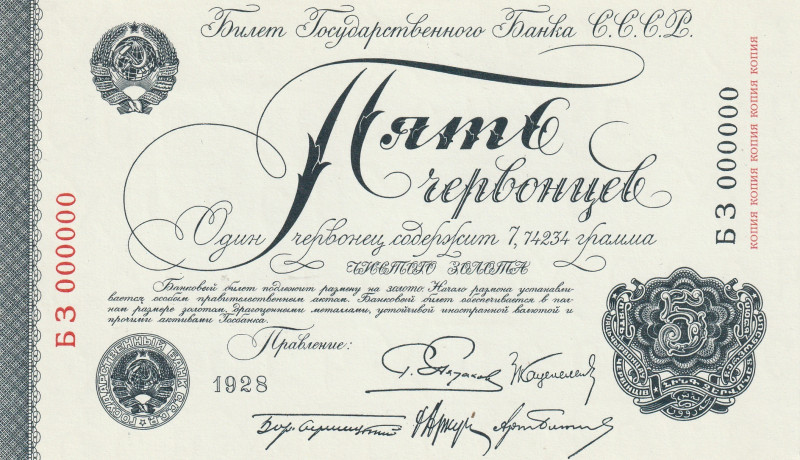 Билет Государственного Банка С.С.С.Р.
Пять
червонцев
Один червонец содержит 7,74234 грамма
чистого золота
Банковый билет подлежит размену на золото. Начало размена устанавли-
вается особым правительственным актом. Банковый билет обеспечивается в пол-
ном размере золотом, драгоценными металлами, устойчивой иностранной валютой и
прочими активами Госбанка.
Правление:
1928
БЗ 000000
БЗ 000000
КОПИЯ КОПИЯ КОПИЯ КОПИЯ КОПИЯ
5